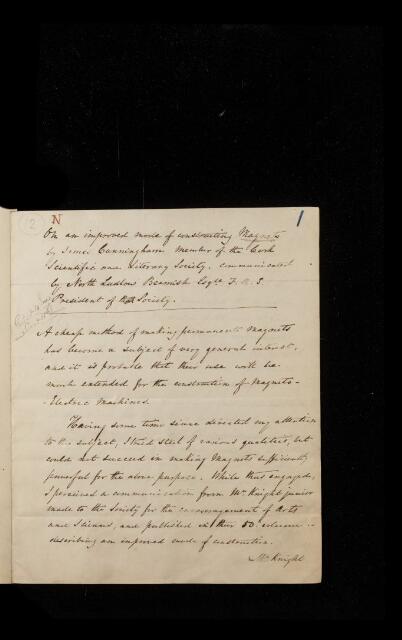 12 N 1
On an improved mode of constructing Magnets
by James Cunningham member of the Cork
Scientific and Literary Society. Communicated
by North Ludlow Beamish Esqre F. R. S.
President of that Society.
A cheap method of making permanent Magnets
has become a subject of very general interest,
and it is probable that their use will be
much extended for the construction of Magneto-
-Electric Machines.
Having some time since directed my attention
to the subject, I tried steel of various qualities, but
could not succeed in making Magnets sufficiently
powerful for the above purpose. While thus engaged,
I perceived a communication from Mr Knight junior
made to the Society for the encouragement of Arts
and Sciences, and published in their 50 volume
describing an improved mode of construction.
Mr Knight